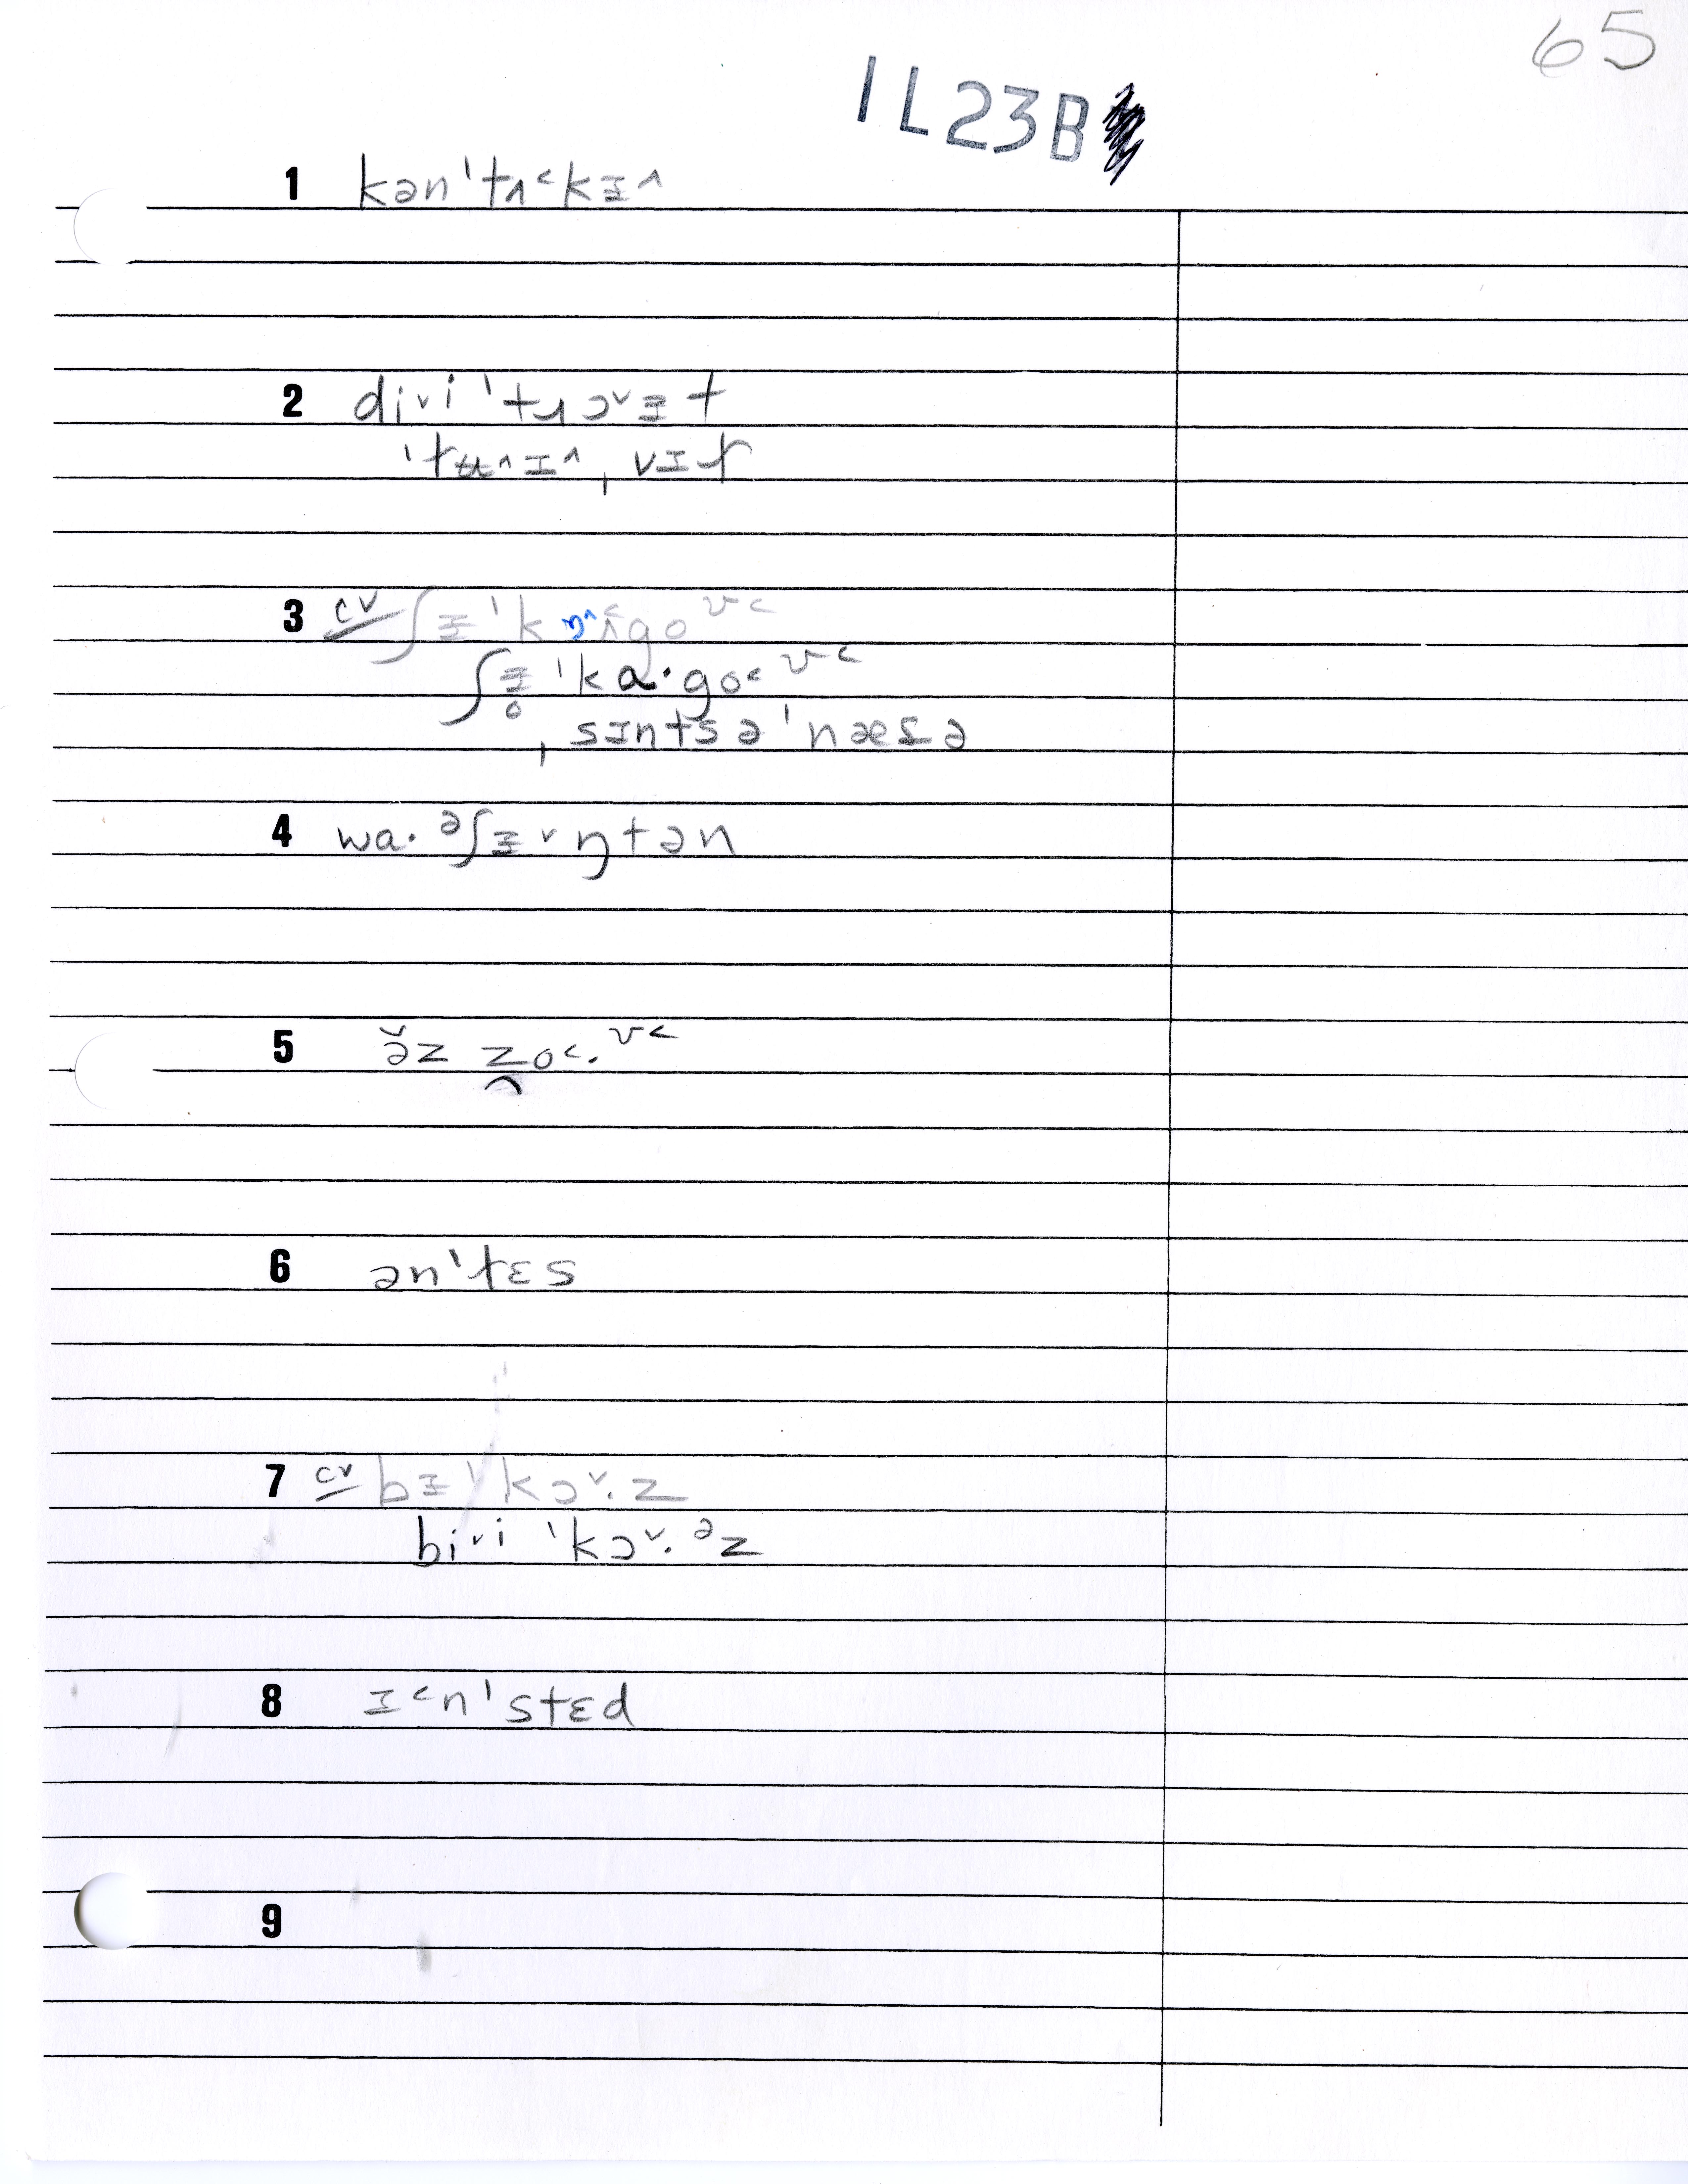 65
1L23B
1 kən ˈtʌ˂kɪ^
2 diᵛi ˈtɹɔᵛɪt
ˈtʉ^ɪ^ˌvɪt
3 cv ʃɪ ˈk go ᶹ˂
ʃɪ̥ ˈkɑ·go˂ ᶹ˂
ˌsɪntsə ˈnæsɪə
4 wa·ᵊʃɪᵛŋtən
5 ə̆z z̯o˂· ᶹ˂
6 ən ˈtɛs
7 cv bɪ ˈkɔᵛ·z
biᵛi ˈkɔᵛ·ᵊz
8 ɪ˂n ˈstɛd
9